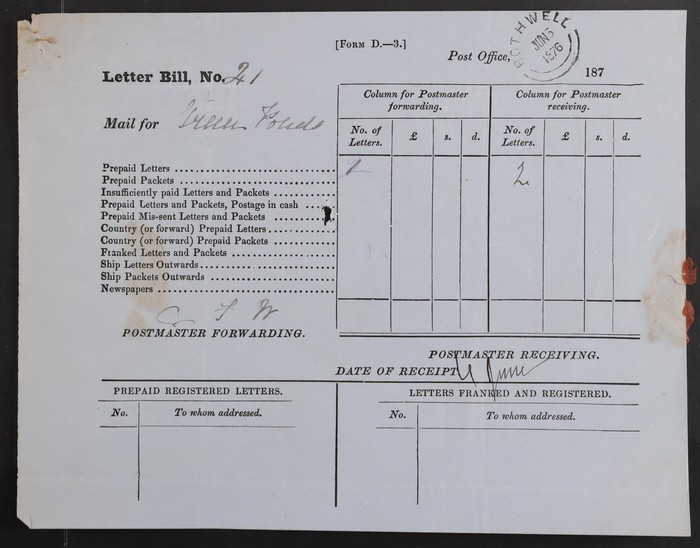 [FORM D.—3.]
Post Office,
BOTHWELL
JUN 5
1876
187
Letter Bill, No. 21
Mail for Green Ponds
Column for Postmaster forwarding.
Column for Postmaster receiving.
No. of Letters. £ s. d. No. of Letters. £ s. d.
Prepaid Letters 2 2
Prepaid Packets
Insufficiently paid Letters and Packets
Prepaid Letters and Packets, Postage in cash
Prepaid Mis-sent Letters and Packets
Country (or forward) Prepaid Letters
Country (or forward) Prepaid Packets
Franked Letters and Packets
Ship Letters Outwards
Ship Packets Outwards
Newspapers
POSTMASTER FORWARDING.
POSTMASTER RECEIVING.
DATE OF RECEIPT June
PREPAID REGISTERED LETTERS.
LETTERS FRANKED AND REGISTERED.
No. To whom addressed.
No. To whom addressed.